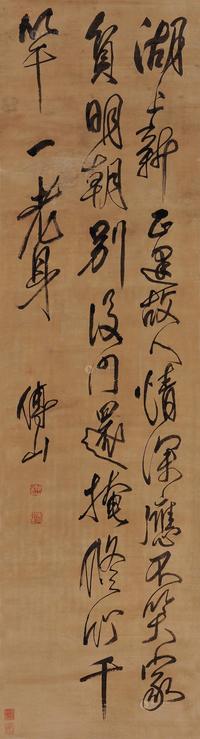 湖上新正逢故人情深應不笑家
貧明朝別後門還掩修竹千
竿一老身
傅山